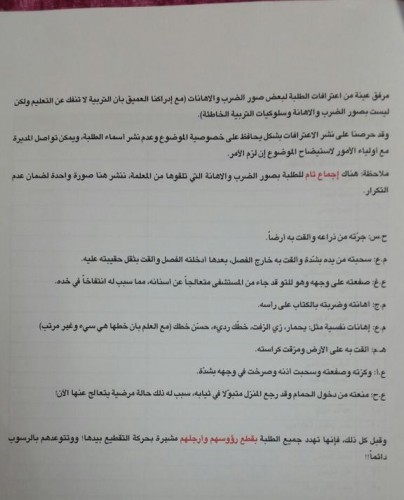 مرفق عينة من اعترافات الطلبة لبعض صور الضرب والاهانات (مع إدراكنا العميق بان التربية لا تنفك عن التعليم ولكن
ليست بصور الضرب والاهانة وسلوكيات التربية الخاطئة).
وقد حرصنا على نشر الاعترافات بشكل يحافظ على خصوصية الموضوع وعدم نشر أسماء الطلبة، ويمكن تواصل المديرة
مع اولياء الأمور لاستيضاح الموضوع إن لزم الأمر.
ملاحظة: هناك إجماع تام للطلبة بصور الضرب والاهانة التي تلقوها من المعلمة، ننشر هنا صورة واحدة لضمان عدم
التكرار.
ح س: جرّته من ذراعه والقت به ارضاً.
م.ع: سحبته من يده بشدّة والقت به خارج الفصل، بعدها أدخلته الفصل والقت بثقل حقيبته عليه.
ع.غ: صفعته على وجهه وهو للتو قد جاء من المستشفى متعالجاً عن اسنانه، مما سبب له انتفاخاً في خده.
م.ج: أهانته وضربته بالكتاب على راسه.
م.ع: إهانات نفسية مثل: يحمار، زي الزفت، خطك رديء، حسّن خطك (مع العلم بان خطها هي سيء وغير مرتب)
هـ.م: القت به على الأرض ومزقت كراسته.
ع.ا: وكزته وصفعته وسحبت اذنه وصرخت في وجهه بشدّة.
ع.ح: منعته من دخول الحمام وقد رجع المنزل متبوّلا في ثيابه، سبب له ذلك حالة مرضية يتعالج عنها الآن!
وقبل كل ذلك، فإنها تهدد جميع الطلبة بقطع رؤوسهم وأرجلهم مشيرة بحركة التقطيع بيدها! ووتتوعدهم بالرسوب
دائماً!!